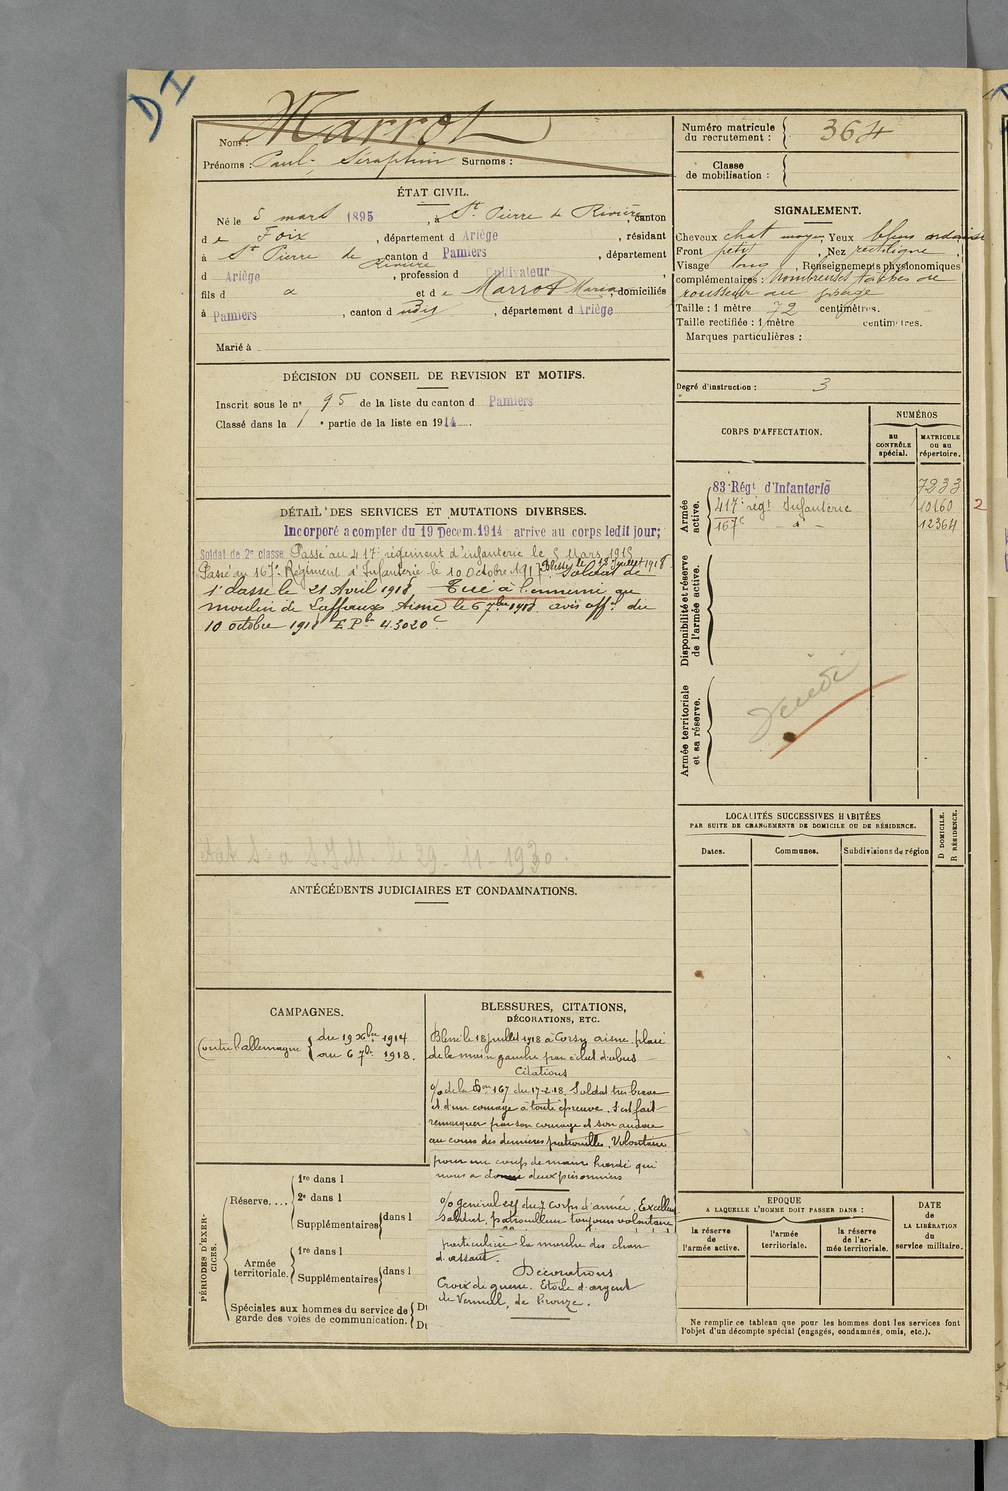 D I
Marrot
Nom :
Prénoms : Paul, Séraphin Surnoms :
Numéro matricule du recrutement : 364
Classe de mobilisation :
ÉTAT CIVIL.
Né le 5 mars 1895, à St Pierre de Rivière, canton
de Foix, département d Ariège, résidant
à St Pierre de Rivière, canton d Pamiers, département
d Ariège, profession d Cultivateur,
fils d et de Marrot Maria, domiciliés
à Pamiers, canton d udis, département d Ariège
Marié à
SIGNALEMENT.
Cheveux chat moyen, Yeux bleus
Front petit, Nez rectiligne,
Visage long, Renseignements physionomiques
complémentaires : nombreuses taches de
rousseur au visage
Taille : 1 mètre 72 centimètres.
Taille rectifiée : 1 mètre centimètres.
Marques particulières :
Degré d'instruction : 3
DÉCISION DU CONSEIL DE REVISION ET MOTIFS.
Inscrit sous le n° 95 de la liste du canton d Pamiers
Classé dans la 1e partie de la liste en 1914.
CORPS D'AFFECTATION.
NUMÉROS
au CONTRÔLE spécial.
MATRICULE ou au répertoire.
Armée active.
83e Régt d'Infanterie 7233
417e régt Infanterie 10160 2
167e - d° - 12364
Disponibilité et réserve de l'armée active.
Armée territoriale et sa réserve.
DÉTAIL DES SERVICES ET MUTATIONS DIVERSES.
Incorporé a compter du 19 Decem. 1914 arrivé au corps ledit jour;
Soldat de 2e classe Passé au 417e régiment d'infanterie le 5 Mars 1915
Passé au 167e Régiment d'Infanterie le 10 Octobre 1917. Blessé le 18 juillet 1918 Soldat de
1e classe le 21 Avril 1918 Tué à l'ennemi au
moulin de Laffaux Aisne le 6 7bre 1918. avis off. du
10 octobre 1918 E Ph 43020 C
état s à S.J.M. le 29-11-1930.
LOCALITÉS SUCCESSIVES HABITÉES
PAR SUITE DE CHANGEMENTS DE DOMICILE OU DE RÉSIDENCE.
Dates. Communes. Subdivisions de région
D DOMICILE.
R RÉSIDENCE.
ANTÉCÉDENTS JUDICIAIRES ET CONDAMNATIONS.
CAMPAGNES.
Contre l'allemagne du 19 Xbre 1914
au 6 7bre 1918.
BLESSURES, CITATIONS,
DÉCORATIONS, ETC.
Blessé le 18 juillet 1918 à Corsy aisne plaie
de la main gauche par éclat d'obus
Citations
O/ de la Don 167 du 17-2-18. Soldat très brave
et d'un courage à toute épreuve. S'est fait
remarquer par son courage et son audace
au cours des dernières patrouilles. Volontaire
pour un coup de main hardi qui
nous a donné deux prisonniers
O/ général du 7 corps d'armée. Excellent
soldat, patrouilleur toujours volontaire
particulière la marche des chars
d'assaut.
Décorations
Croix de guerre. Etoile d'argent
de Vermeil, de bronze.
PÉRIODES D'EXERCICES.
Réserve....
1re dans l
2e dans l
Supplémentaires dans l
Armée territoriale.
1re dans l
Supplémentaires dans l
Spéciales aux hommes du service de
garde des voies de communication.
Du
Du
EPOQUE
A LAQUELLE L'HOMME DOIT PASSER DANS :
la réserve de l'armée active.
l'armée territoriale.
la réserve de l'armée territoriale.
DATE de LA LIBÉRATION du service militaire.
Ne remplir ce tableau que pour les hommes dont les services font
l'objet d'un décompte spécial (engagés, condamnés, omis, etc.).